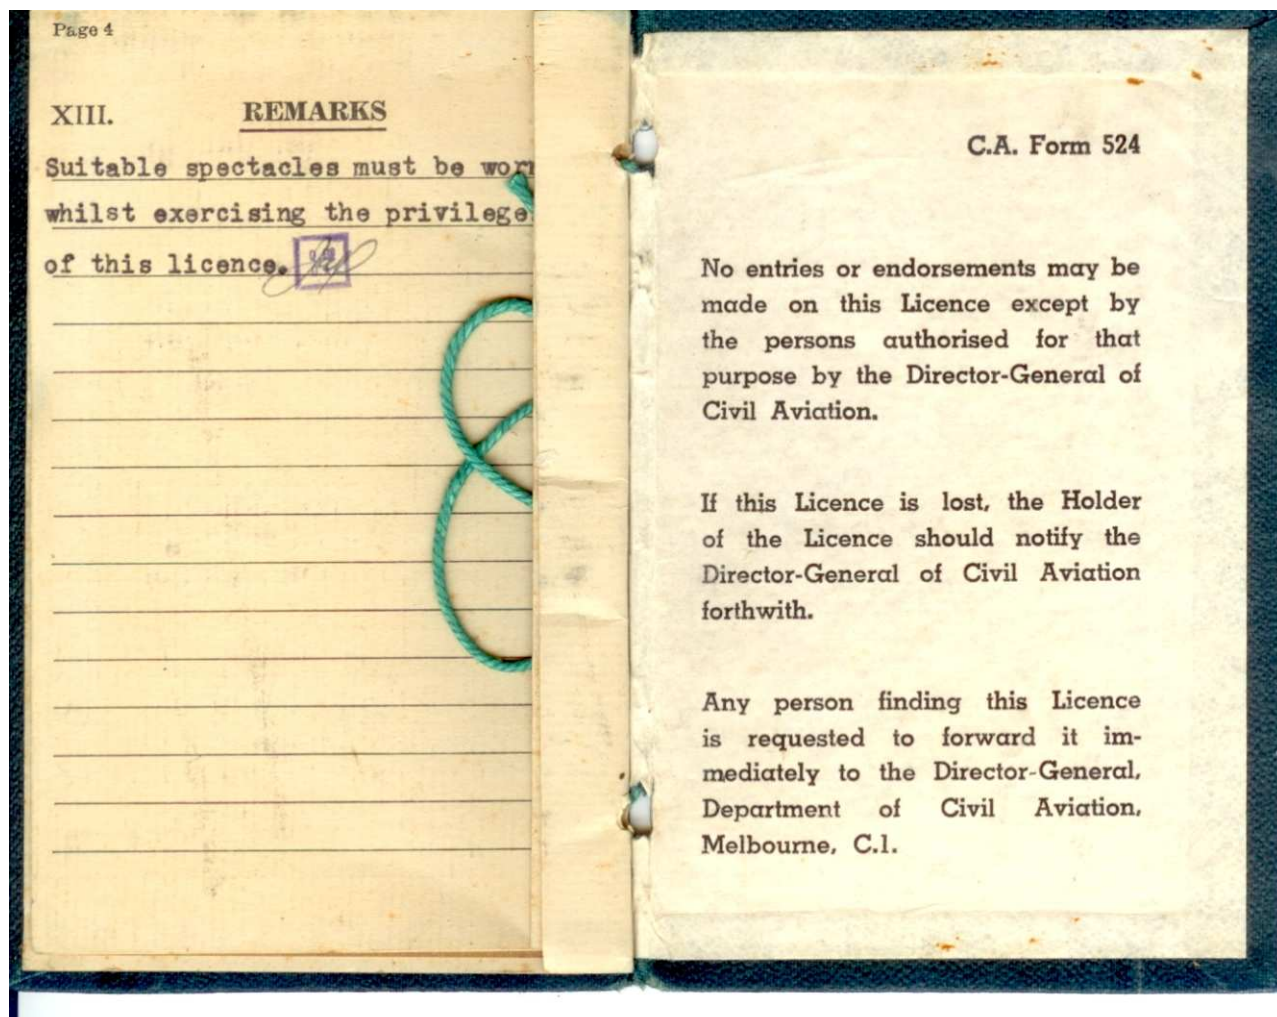 Page 4
XIII. REMARKS
Suitable spectacles must be worn
whilst exercising the privilege
of this licence.
C.A. Form 524
No entries or endorsements may be
made on this Licence except by
the persons authorised for that
purpose by the Director-General of
Civil Aviation.
If this Licence is lost, the Holder
of the Licence should notify the
Director-General of Civil Aviation
forthwith.
Any person finding this Licence
is requested to forward it im-
mediately to the Director-General,
Department of Civil Aviation,
Melbourne, C.1.